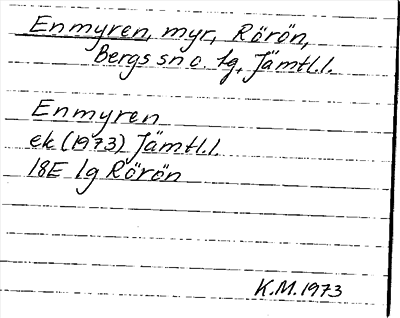 Enmyren, myr, Rörön,
Bergs sn o. lg, Jämtl.l.
Enmyren
ek (1973) Jämtl.l.
18E 1g Rörön
K.M. 1973